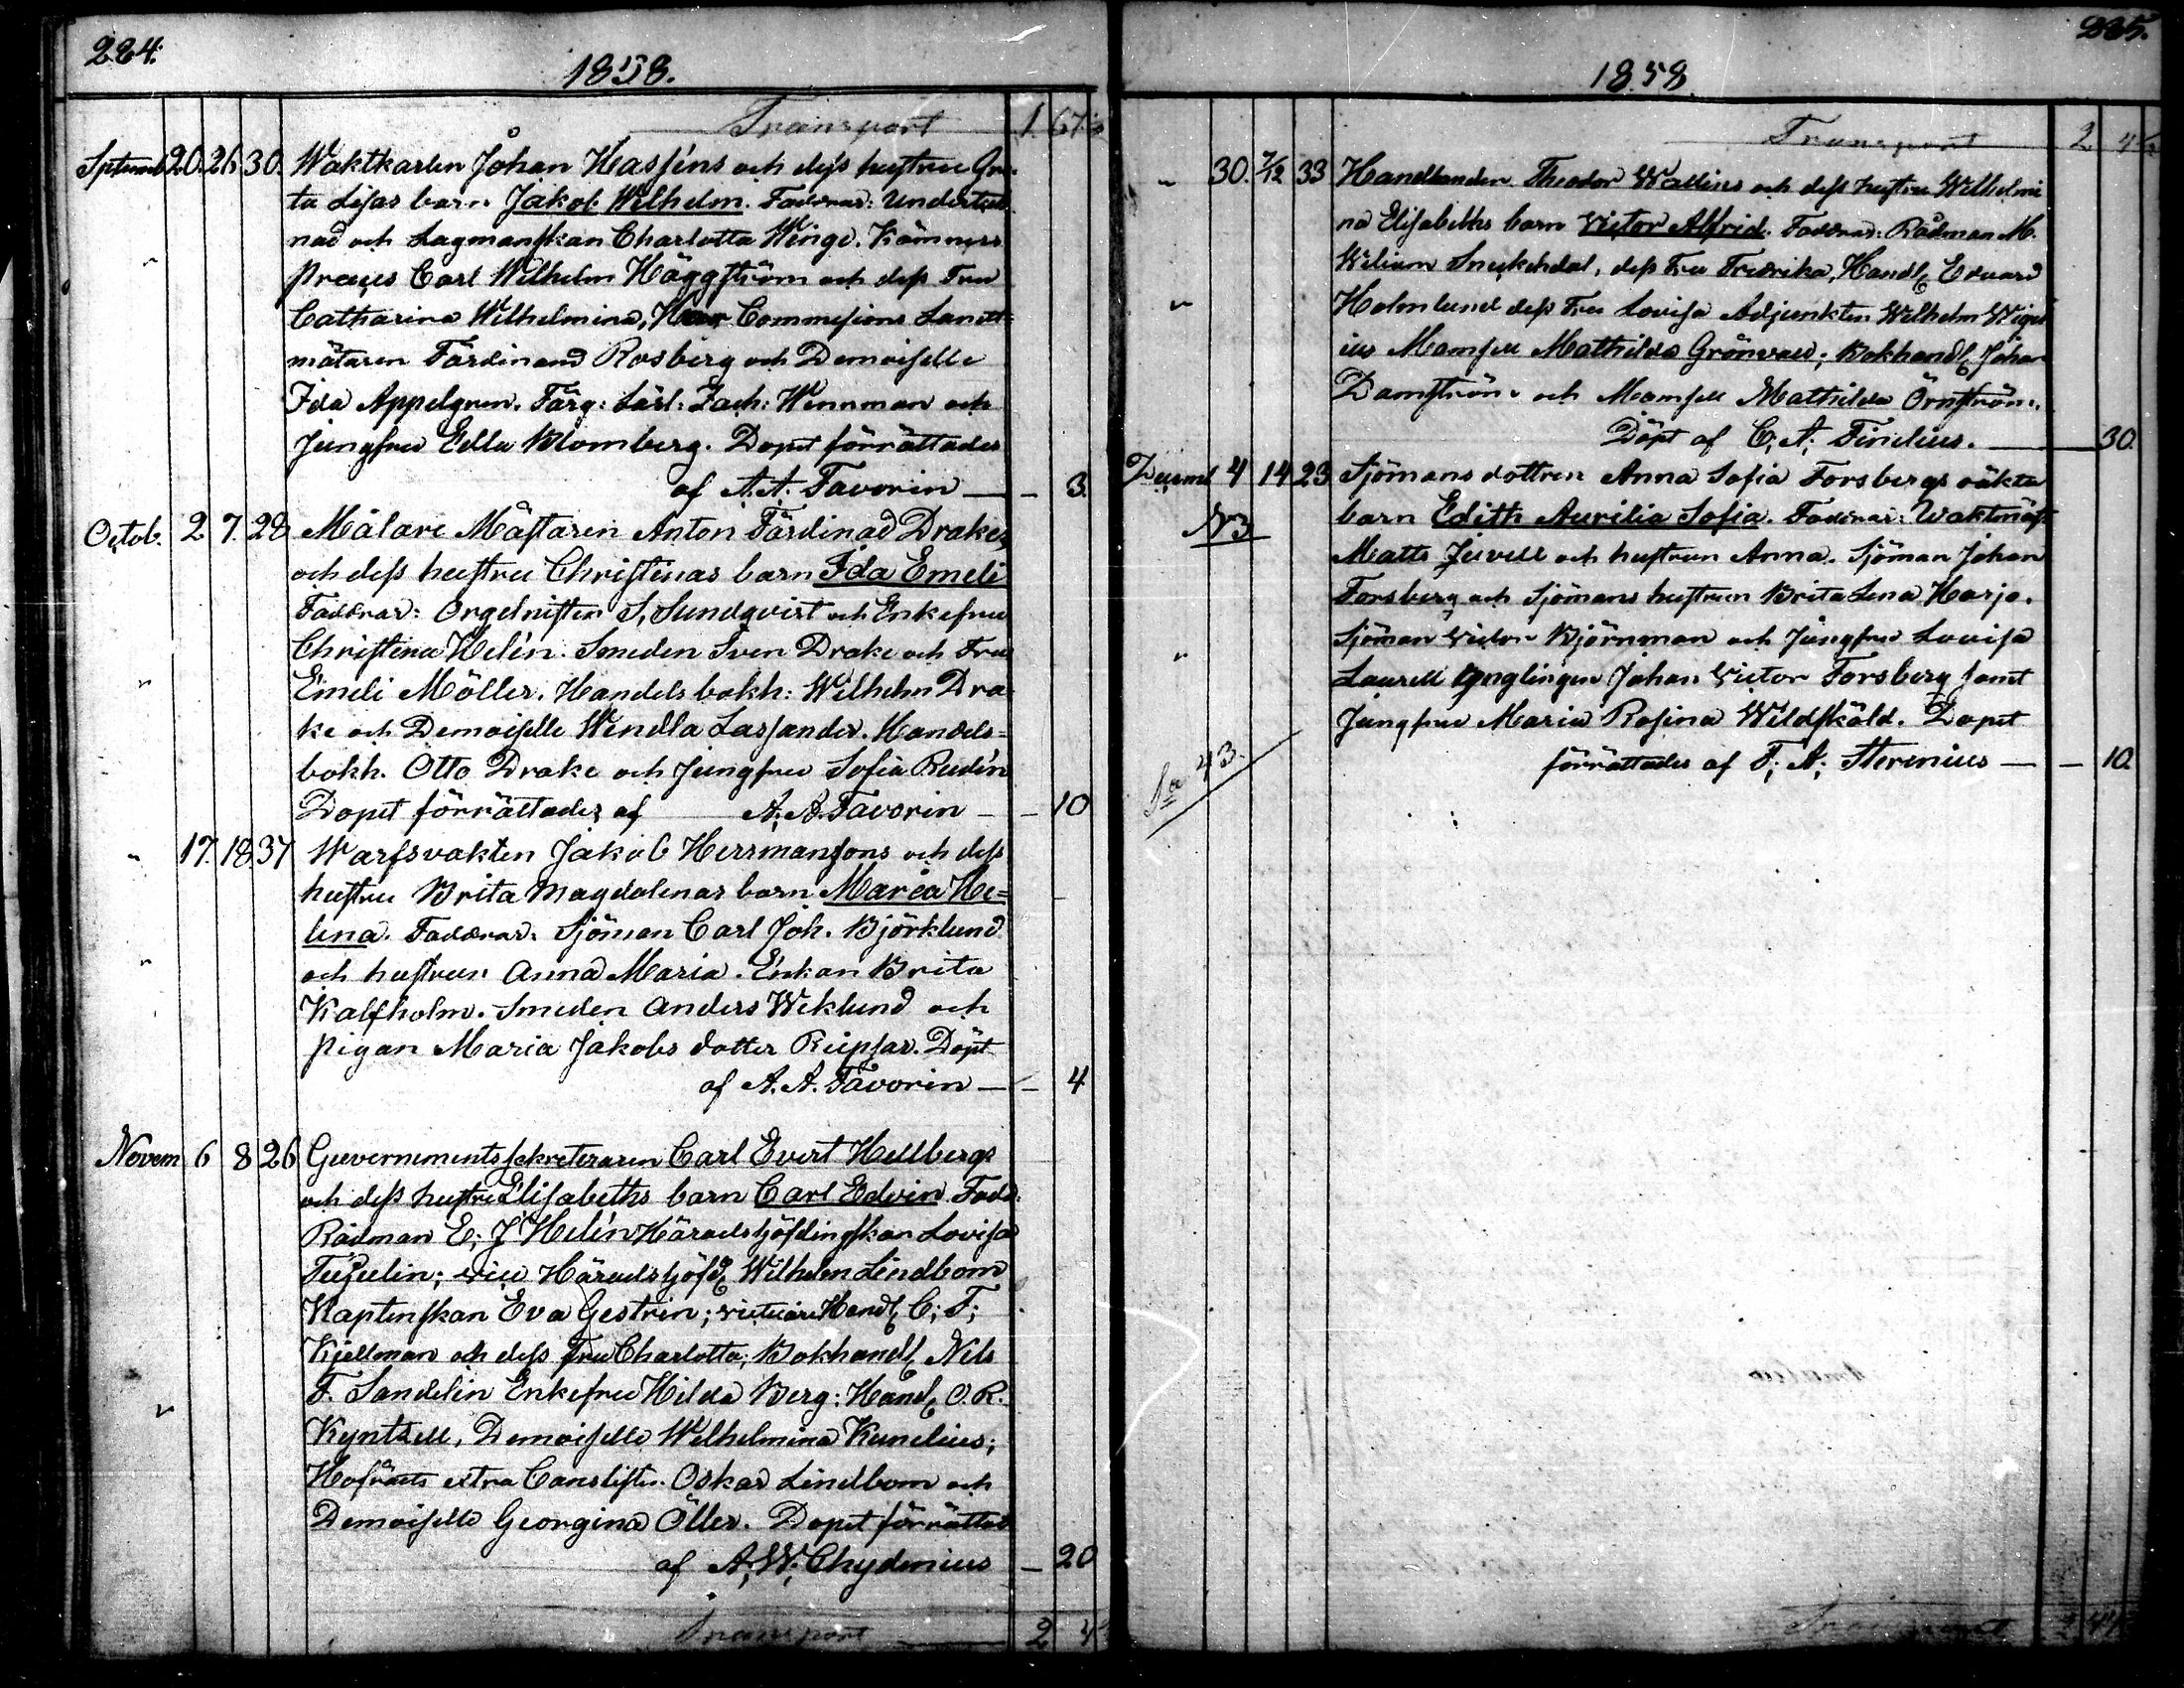 224.
1858.
Transport 1. 67.
Septemb 20. 26 30. Waktkarlen Johan Hasséns och dess hustru Gre-
ta Lisas barn Jakob Wilhelm. Faddrar: Underteck
nad och Lagmanskan Charlotta Winge. Kämners
Preses Carl Wilhelm Häggström och dess Fru
Catharina Wilhelmina, Commissions Landt-
mätaren Färdinand Rosberg och Demoiselle
Ida Appelgren. Färg: Lärl: Zach: Wennman och
Jungfru Edla Blomberg. Dopet förrättades
af A. A. Favorin — – 3.
Octob. 2 7. 28 Målare Mästaren Anton Färdinad Drakes
och dess hustru Christinas barn Ida Emeli
Faddrar: Orgelnisten S. Sundqvist och Enkefru
Christina Helén. Smeden Sven Drake och Fru
Emeli Möller. Handelsbokh: Wilhelm Dra-
ke och Demoiselle Wendla Lassander. Handels=
bokh. Otto Drake och Jungfru Sofia Rudén
Dopet förrättades af A. A. Favorin – – 10
„ 17. 18. 37 Warfsvakten Jakob Herrmansons och dess
hustru Brita Magdalenas barn Maria He=
lena. Faddrar: Sjöman Carl Joh. Björklund
och hustrun Anna Maria. Enkan Brita
Kalfholm. Smeden Anders Weklund och
pigan Maria Jakobs dotter Reipsar. Döpt
af A. A. Favorin — – 4
Novem 6 8 26 Guvernementssekreteraren Carl Evert Hellbergs
och dess hustru Elisabeths barn Carl Edvin. Fadd:
Rådman E. J Helén Häradshöfdingskan Lovisa
vice Häradshöfd. Wilhelm Lindbom
Kaptenskan Eva Gestrin; victuarie Handl. C. F.
Kjellman och dess Fru Charlotta; Bokhandl. Nils
F. Sandelin Enkefru Hilda Berg: Handl. O. R.
Kyntzell, Demoiselle Wilhelmina Kunelius;
Hofrätts extra Canslisten Oskar Lindbom och
Demoiselle Georgina Öller. Dopet förrättad
af A. W. Chydenius – 20
Transport 2 4
225.
1858.
Transport 2 4
„ 30. 7/12 33 Handlanden Theodor Wallins och dess hustru Wilhelmi
na Elisabeths barn Victor Alfrid. Faddrar: Rådman M.
Weliam Sneckendal, dess Fru Fredrika, Handl. Edvard
Holmlund dess Fru Lovisa Adjunkten Wilhelm Wige
ius Mamsell Mathilda Grönvall; Bokhandl. Johan
Damström och Mamsell Mathilda Örnström.
Döpt af C. A. Finelius. — 30.
Decemb 4 14 23 Sjömans dottren Anna Sofia Forsbergs oäkta
N3 barn Edith Aurilia Sofia. Faddrar: Waktmäst
Matts Juvell och hustrun Anna. Sjöman Johan
Forsberg och Sjömans hustrun Brita Lena Harjo.
Sjöman Victor Björnman och Jungfru Lovisa
Laurell Ynglingen Johan Victor Forsberg samt
Jungfru Maria Rosina Wildsköld. Dopet
förrättades af F. A. Stenius — – 10.
Sa 43.
Transport 2 44